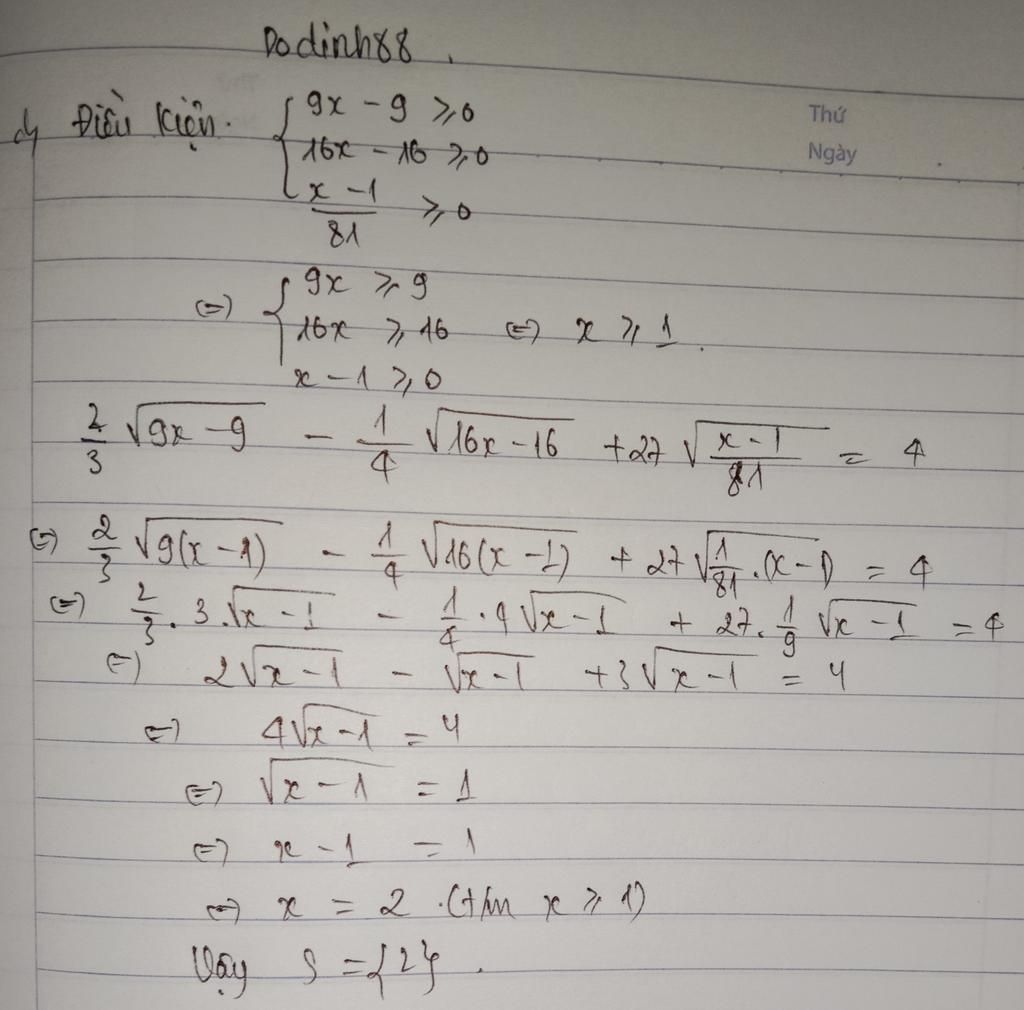 Dodinh88.
d, Điều kiện. { 9x - 9 ≥ 0
Thứ
16x - 16 ≥ 0
Ngày
(x - 1)/81 ≥ 0
⇔ { 9x ≥ 9
16x ≥ 16 ⇔ x ≥ 1.
x - 1 ≥ 0
2/3 √(9x - 9) - 1/4 √(16x - 16) + 27 √((x - 1)/81) = 4
⇔ 2/3 √(9(x - 1)) - 1/4 √(16(x - 1)) + 27 √(1/81 . (x - 1)) = 4
⇔ 2/3 . 3 . √(x - 1) - 1/4 . 4 √(x - 1) + 27 . 1/9 √(x - 1) = 4
⇔ 2√(x - 1) - √(x - 1) + 3√(x - 1) = 4
⇔ 4√(x - 1) = 4
⇔ √(x - 1) = 1
⇔ x - 1 = 1
⇔ x = 2 . (t/m x ≥ 1)
Vậy S = {2}.